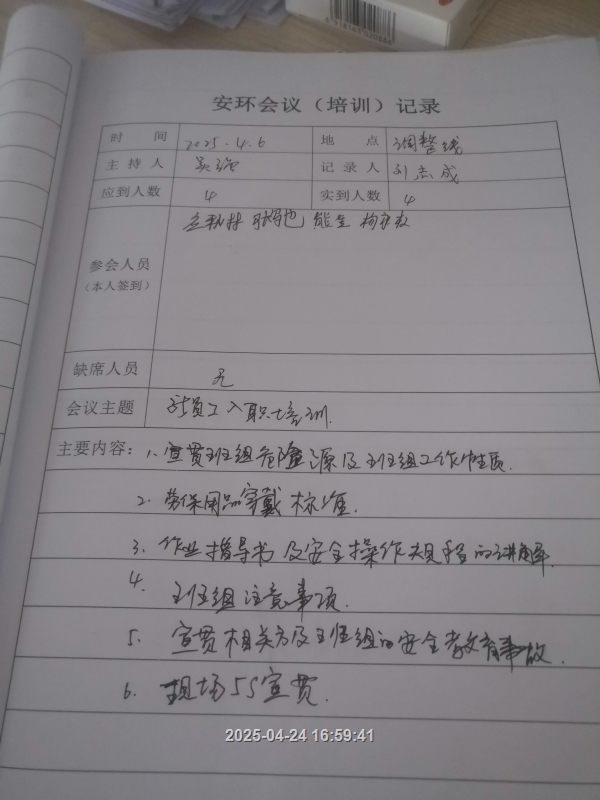 6 918165 020888
安环会议（培训）记录
时间 2025.4.6 地点 调整线
主持人 记录人 刘志成
应到人数 4 实到人数 4
参会人员
（本人签到）
缺席人员 无
会议主题 新员工入职培训.
主要内容：1. 宣贯班组危险源及班组工作性质.
2. 劳保用品穿戴标准.
3. 作业指导书及安全操作规程的讲解.
4. 班组注意事项.
5. 宣贯相关方及班组的安全教育事故.
6. 现场5S宣贯.
2025-04-24 16:59:41